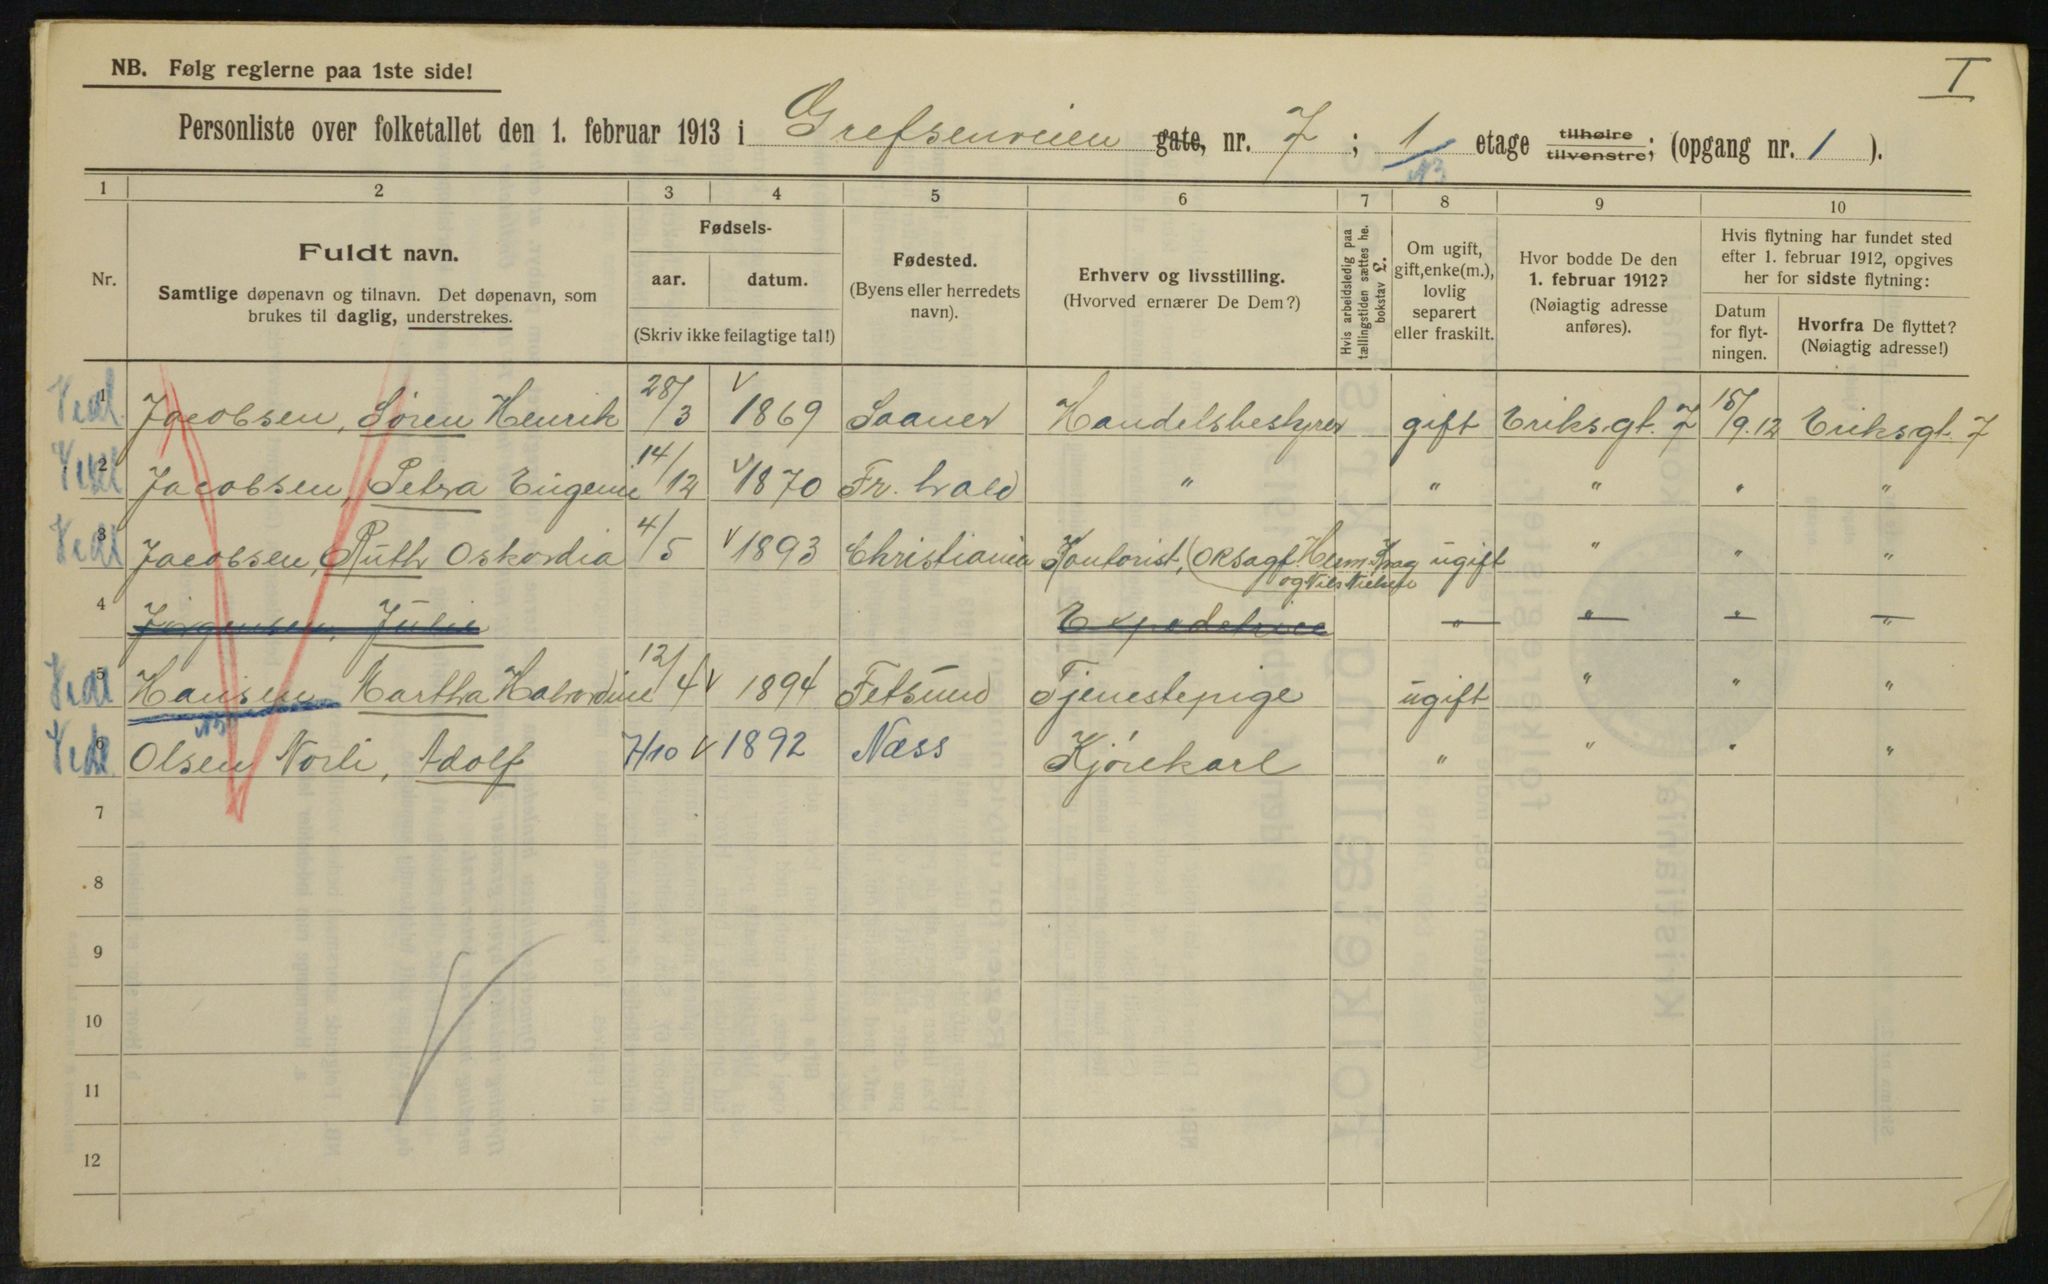 I
NB. Følg reglerne paa 1ste side!
Personliste over folketallet den 1. februar 1913 i Grefsenveien gate, nr. 7 ; 1 etage tilhøire tilvenstre; (opgang nr. 1 ).
1 2 3 4 5 6 7 8 9 10
Nr.
Fuldt navn.
Samtlige døpenavn og tilnavn. Det døpenavn, som
brukes til daglig, understrekes.
Fødsels-
aar. datum.
(Skriv ikke feilagtige tal!)
Fødested.
(Byens eller herredets
navn).
Erhverv og livsstilling.
(Hvorved ernærer De Dem?)
Hvis arbeidsledig paa
tællingstiden sættes he.
bokstav L.
Om ugift,
gift, enke(m.),
lovlig
separert
eller fraskilt.
Hvor bodde De den
1. februar 1912?
(Nøiagtig adresse
anføres).
Hvis flytning har fundet sted
efter 1. februar 1912, opgives
her for sidste flytning:
Datum
for flyt-
ningen.
Hvorfra De flyttet?
(Nøiagtig adresse!)
Vedl. 1 Jacobsen, Søren Henrik 28/3 1869 Saaner Handelsbestyrer gift Eriksgt. 7 15/9.12 Eriksgt. 7
Vedl 2 Jacobsen, Petra Eugenie 14/12 1870 Fr. hald " " " " "
Vedl 3 Jacobsen, Ruth Oskordia 4/5 1893 Christiania Kontorist, (OR Sagf. Herm. Krag og Nils Nielsen ugift " " "
4 Jørgensen, Julie Expeditrice " " " "
Vedl 5 Hansen Martha Halvordine 12/4 1894 Fetsund Tjenestepige ugift " " "
Vedl 6 Olsen Norli, Adolf 7/10 1892 Næss Kjørekarl " " " "
7
8
9
10
11
12